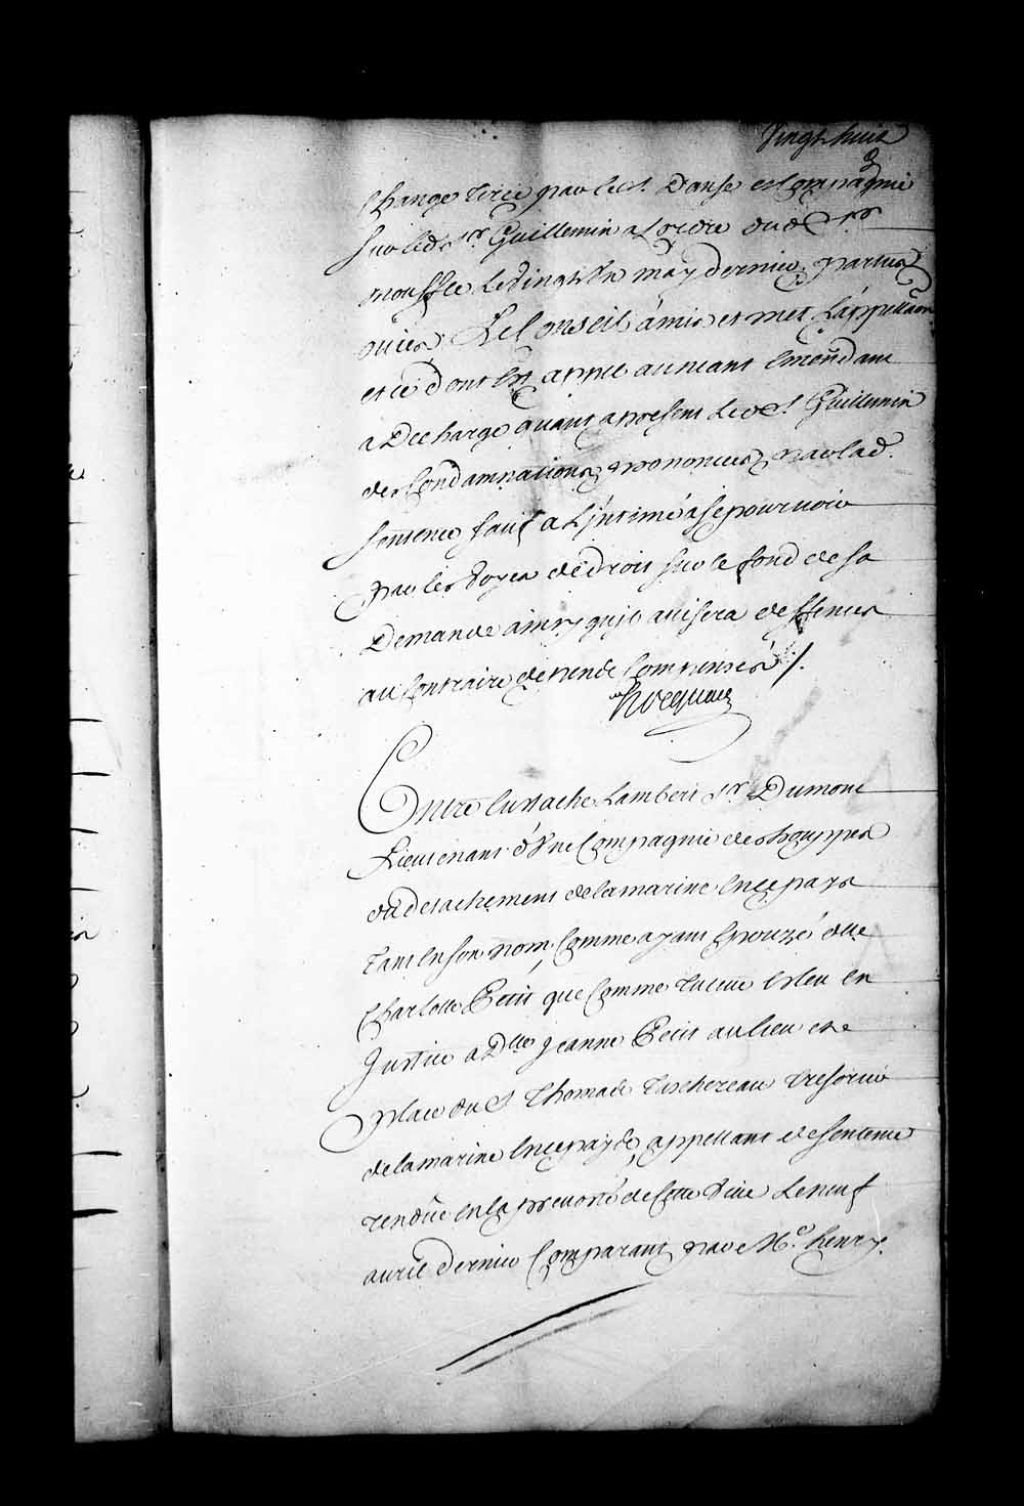 Vingt huit
change tirée par led. s. Danse et compagnie
sur led. sr Guillemin a Lordre dud. sr
mouffle le vingt un may dernier, parties
ouies. Le Conseil a mis et met Lappellaõn
et ce dont est appel au neant emendant
a Decharge quant a present led. s. Guillemin
des Condamnations prononcées par lad.
sentence sauf a L'jntimé a se pourvoir
par les voyes de droit sur le fond de sa
Demande ainsy qu'jl avisera deffences
au Contraire depende Compensés /.
hocquart
Entre Eustache Lambert sr Dumont
Lieutenant d'Vne Compagnie des trouppes
du detachement de la marine en ce pays
tant en son nom, Comme ayant Epouzé dlle
Charlotte Petit que Comme tuteur Esleu en
Justice a Dlle Jeanne Petit au lieu et
place du S Thomas Taschereau tresorier
de la marine en ce pays, appellant de sentence
rendüe en la prevosté de Cette ville Le neuf
avril dernier Comparant par Me henry.